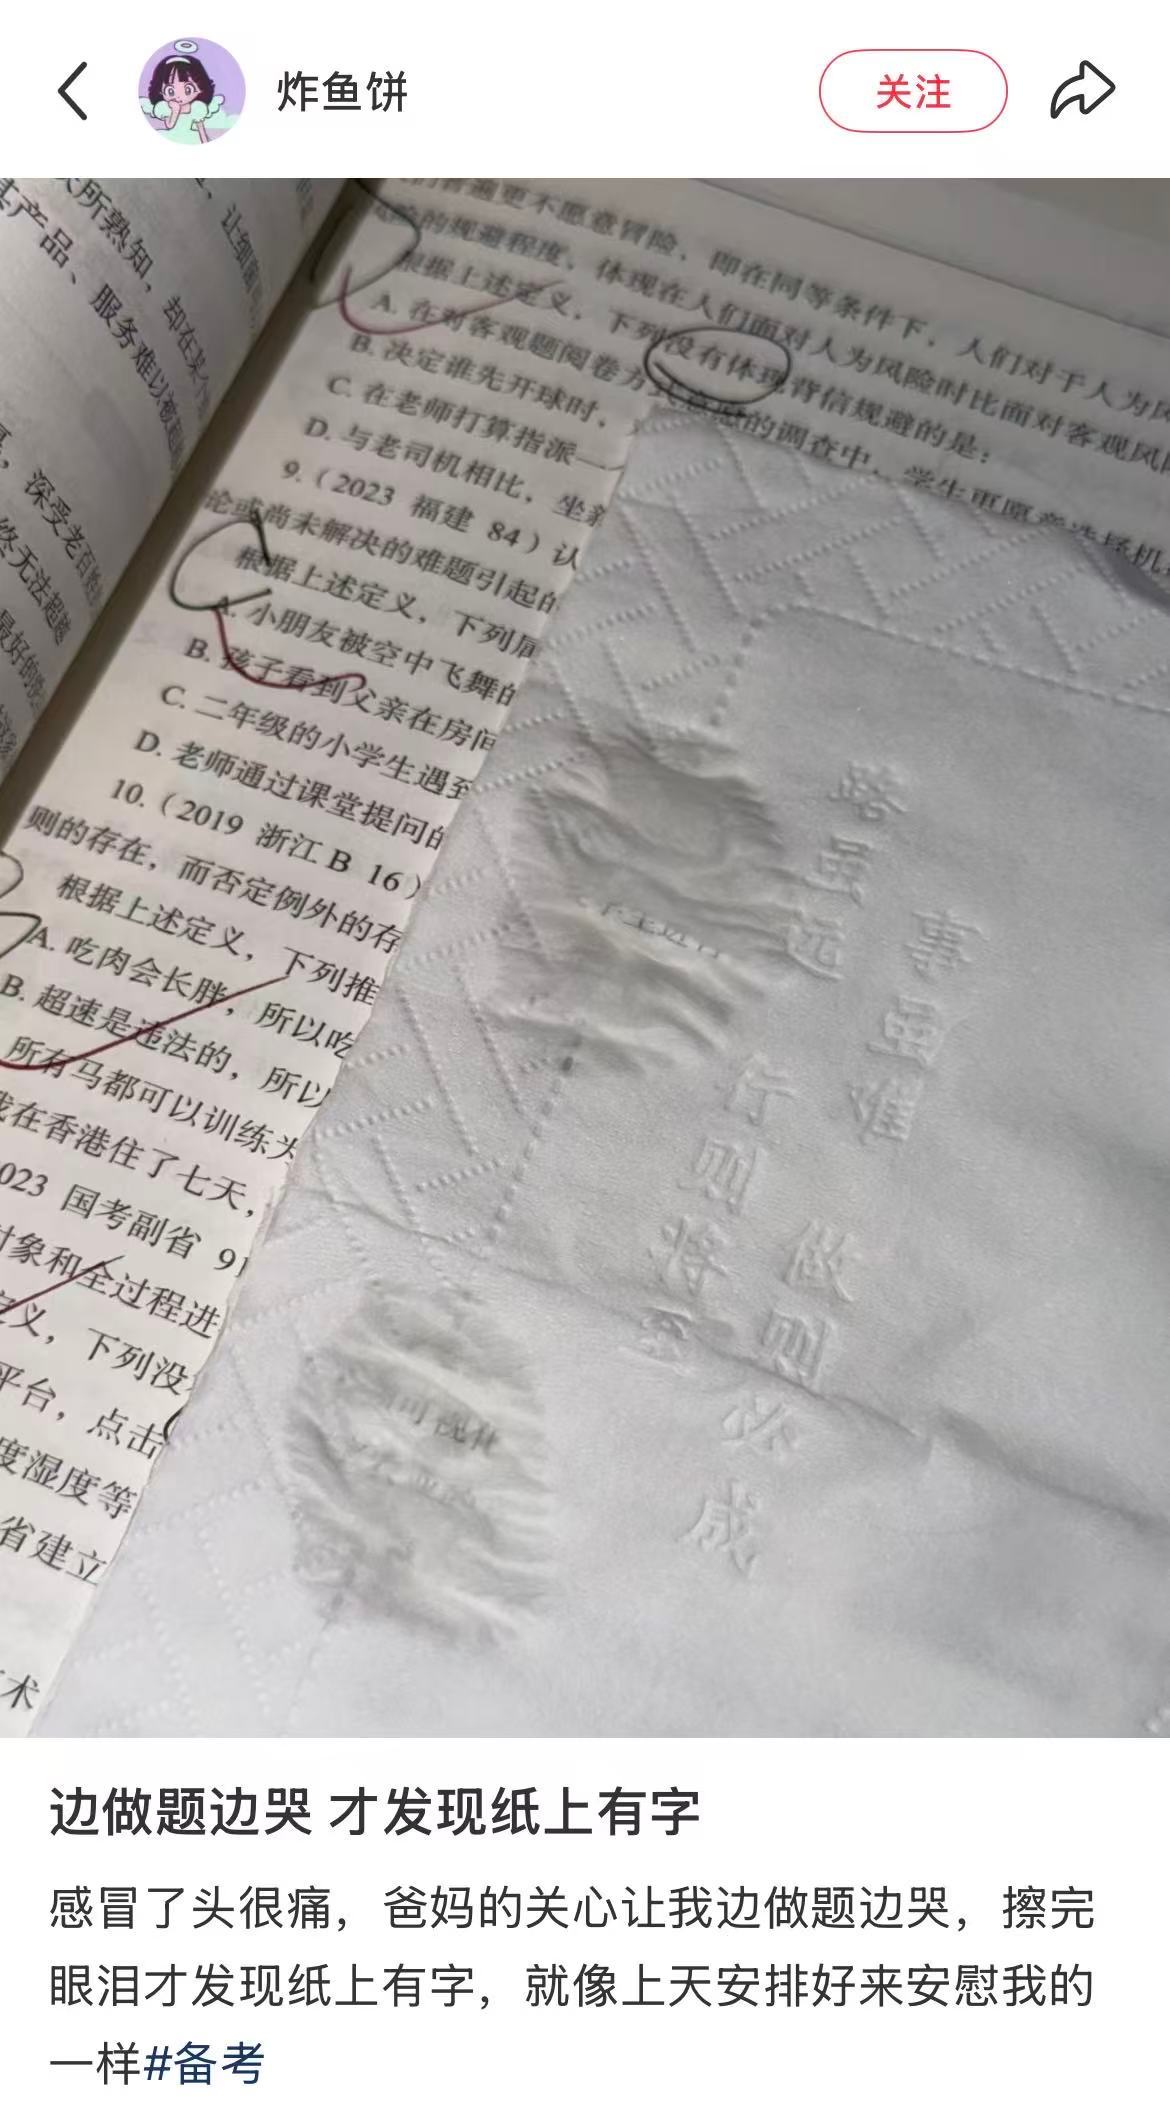 炸鱼饼
关注
让细
大所熟知，却在某个
其产品、服务难以被
深受老百姓
终无法超越
最好的
的普遍更不愿意冒险，即在同等条件下，人们对于人为风
险的规避程度，体现在人们面对人为风险时比面对客观风
根据上述定义，下列没有体现背信规避的是：
A. 在对客观题阅卷方式意愿的调查中，学生更愿意选择机
B. 决定谁先开球时，
C. 在老师打算指派一
D. 与老司机相比，坐新
9.（2023 福建 84）认
论或尚未解决的难题引起的
根据上述定义，下列属
A. 小朋友被空中飞舞的
B. 孩子看到父亲在房间
C. 二年级的小学生遇到
D. 老师通过课堂提问的
10.（2019 浙江 B 16）
则的存在，而否定例外的存
根据上述定义，下列推
A. 吃肉会长胖，所以吃
B. 超速是违法的，所以
所有马都可以训练为
我在香港住了七天，
023 国考副省 91
对象和全过程进
定义，下列没
平台，点击
度湿度等
省建立
术
路虽远
行则将至
事虽难
做则必成
可视化
边做题边哭 才发现纸上有字
感冒了头很痛，爸妈的关心让我边做题边哭，擦完
眼泪才发现纸上有字，就像上天安排好来安慰我的
一样#备考